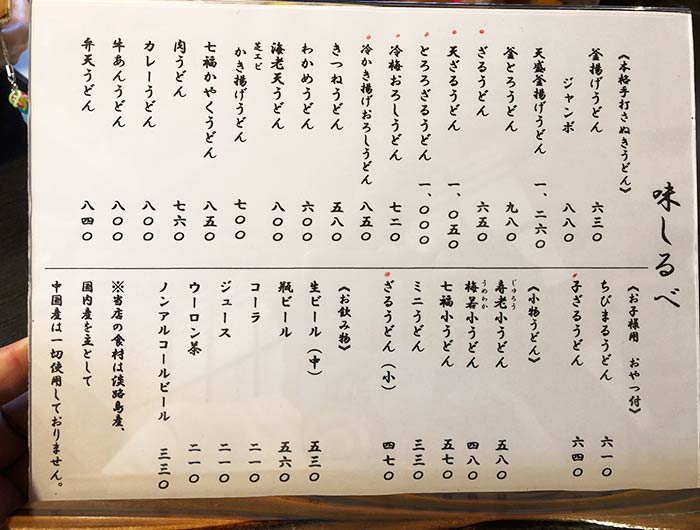 味しるべ
《本格手打さぬきうどん》
釜揚げうどん 六三〇
ジャンボ 八八〇
天盛釜揚げうどん 一、二六〇
釜とろうどん 九八〇
ざるうどん 六五〇
天ざるうどん 一、〇五〇
とろろざるうどん 一、〇〇〇
冷梅おろしうどん 七二〇
冷かき揚げおろしうどん 八五〇
きつねうどん 五八〇
わかめうどん 六〇〇
海老天うどん 八〇〇
芝エビ
かき揚げうどん 七〇〇
七福かやくうどん 八五〇
肉うどん 七六〇
カレーうどん 八〇〇
牛あんうどん 八〇〇
弁天うどん 八四〇
《お子様用 おやつ付》
ちびまるうどん 六一〇
子ざるうどん 六四〇
《小物うどん》
じゅろう
寿老小うどん 五八〇
うめわか
梅若小うどん 四八〇
七福小うどん 五七〇
ミニうどん 三三〇
ざるうどん（小） 四七〇
《お飲み物》
生ビール（中） 五三〇
瓶ビール 五六〇
コーラ 二一〇
ジュース 二一〇
ウーロン茶 二一〇
ノンアルコールビール 三三〇
※当店の食材は淡路島産、
国内産を主として
中国産は一切使用しておりません。